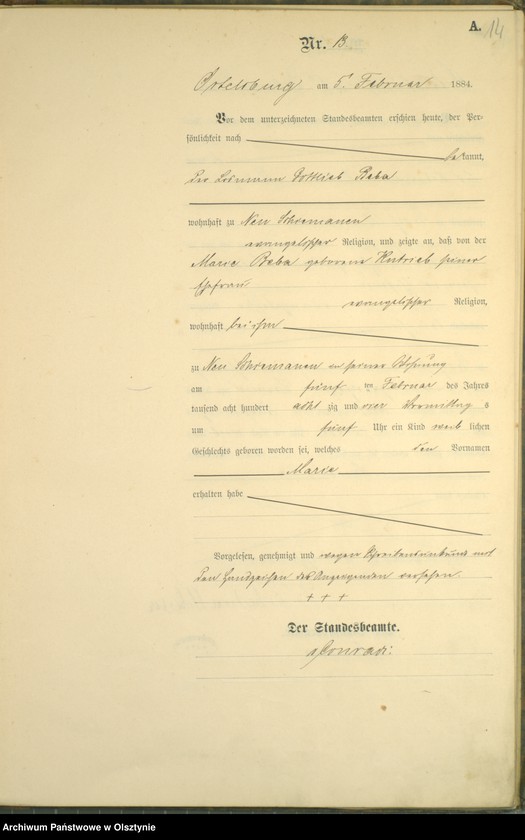 A.
14
Nr. 13.
Ortelsburg am 5. Februar 1884.
Vor dem unterzeichneten Standesbeamten erschien heute, der Per-
sönlichkeit nach
bekannt,
der Losmann Gottlieb Baba
wohnhaft zu Neu Schiemanen
evangelischer Religion, und zeigte an, daß von der
Marie Baba geborene seiner
Ehefrau
evangelischer Religion,
wohnhaft bei ihm
zu Neu Schiemanen in seiner Wohnung
am fünf ten Februar des Jahres
tausend acht hundert acht zig und vier Vormittag s
um fünf Uhr ein Kind weib lichen
Geschlechts geboren worden sei, welches den Vornamen
Marie
erhalten habe
Vorgelesen, genehmigt und wegen Schreibensunkunde mit
den Handzeichen des Anzeigenden versehen.
+ + +
Der Standesbeamte.
Conradi
Archiwum Państwowe w Olsztynie